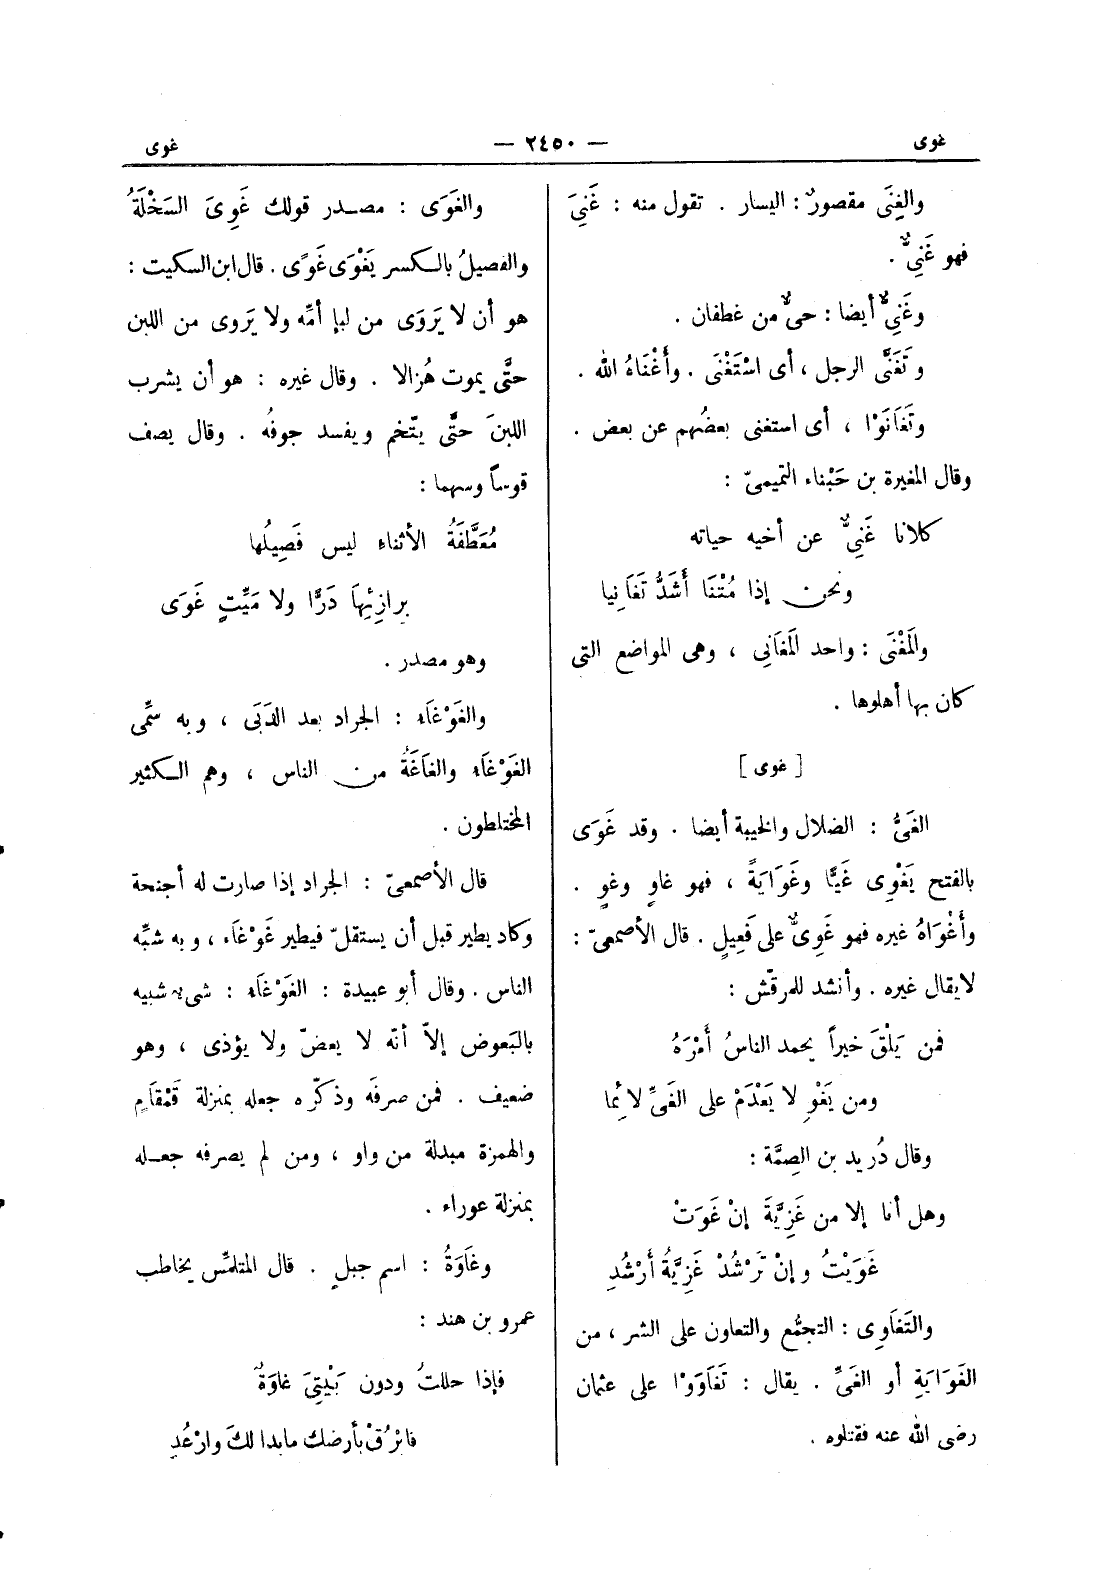 غوى — ٢٤٥٠ — غوى
والغِنَى مقصورٌ : اليسار . تقول منه : غَنِىَ
فهو غَنِىٌّ .
وغَنِىٌّ أيضا : حىٌّ من غطفان .
وتَغَنَّى الرجل ، أى اسْتَغْنَى . وأَغْنَاهُ الله .
وتَغَانَوْا ، أى استغنى بعضُهم عن بعض .
وقال المغيرة بن حَبْناء التميمىّ :
كلانا غَنِىٌّ عن أخيه حياته
ونحن إذا مُتْنَا أَشَدُّ تَغَانِيا
والمَغْنَى : واحد المَغَانِى ، وهى المواضع التى
كان بها أهلوها .
[ غوى ]
الغَىُّ : الضلال والخيبة أيضا . وقد غَوَى
بالفتح يَغْوِى غَيًّا وغَوَايَةً ، فهو غاوٍ وغوٍ .
وأَغْوَاهُ غيره فهو غَوِىٌّ على فَعِيلٍ . قال الأصمعىّ :
لايقال غيره . وأنشد للمرقّش :
فمن يَلْقَ خيراً يحمد الناسُ أَمْرَهُ
ومن يَغْوِ لا يَعْدَمْ على الغَىِّ لائما
وقال دُريد بن الصِمَّة :
وهل أنا إلا من غَزِيَّةَ إنْ غَوَتْ
غَوَيْتُ وإنْ تَرْشُدْ غَزِيَّةُ أَرْشُدِ
والتَغَاوِى : التجمُّع والتعاون على الشر ، من
الغَوَايَةِ أو الغَىِّ . يقال : تَغَاوَوْا على عثمان
رضى الله عنه فقتلوه .
والغَوَى : مصدر قولك غَوِىَ السَخْلَةُ
والفصيلُ بالكسر يَغْوَى غَوًى . قال ابن السكيت :
هو أن لا يَرْوَى من لبإ أمِّه ولا يَروى من اللبن
حتَّى يموت هُزالا . وقال غيره : هو أن يشرب
اللبنَ حتَّى يتّخم ويفسد جوفُه . وقال يصف
قوساً وسهما :
مُعَطَّفَةُ الأثناءِ ليس فَصِيلُها
برازِئِهَا دَرًّا ولا مَيِّتٍ غَوَى
وهو مصدر .
والغَوْغَاءُ : الجراد بعد الدَبَى ، وبه سمِّى
الغَوْغَاءُ والغَاغَةُ من الناس ، وهم الكثير
المختلطون .
قال الأصمعىّ : الجراد إذا صارت له أجنحة
وكاد يطير قبل أن يستقلّ فيطير غَوْغَاء ، وبه شبِّه
الناس . وقال أبو عبيدة : الغَوْغَاءُ : شىء شبيه
بالبَعوض إلاّ أنّه لا يعضّ ولا يؤذى ، وهو
ضعيف . فمن صرفَه وذكّره جعله بمنزلة قَمْقَامٍ
والهمزة مبدلة من واو ، ومن لم يصرفه جعله
بمنزلة عوراء .
وغَاوَةُ : اسم جبلٍ . قال المتلمِّس يخاطب
عمرو بن هند :
فإذا حللتُ ودون بَيْتِىَ غاوَةٌ
فابْرُقْ بأرضك مابدا لكَ وارْعُدِ